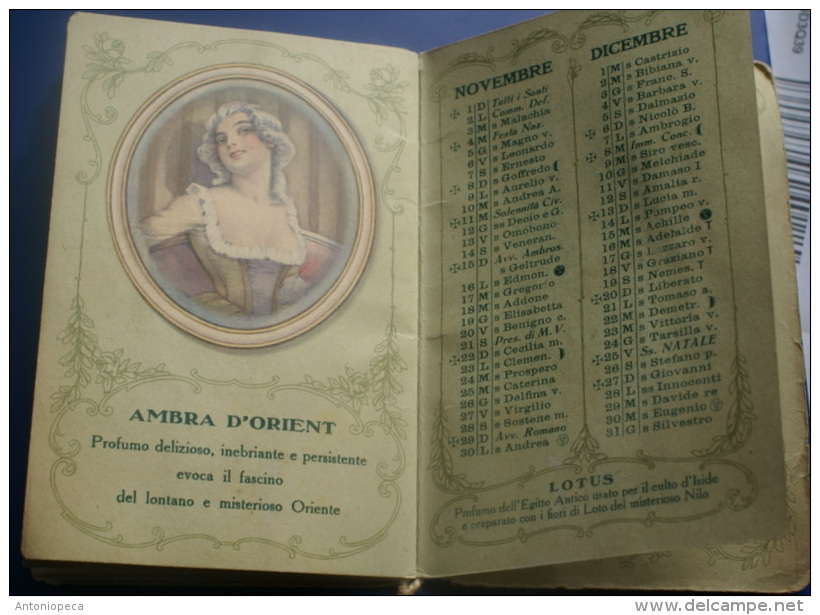 AMBRA D'ORIENT
Profumo delizioso, inebriante e persistente
evoca il fascino
del lontano e misterioso Oriente
NOVEMBRE
1 D Tutti i Santi
2 L Comm. Def.
3 M s Malachia
4 M Festa Naz.
5 G s Magno v.
6 V s Leonardo
7 S s Ernesto
8 D s Goffredo
9 L s Aurelio v.
10 M s Andrea A.
11 M Solennità Civ.
12 G ss Decio e G.
13 V s Omobono
14 S s Veneran.
15 D Avv. Ambros.
s Geltrude
16 L s Edmon.
17 M s Gregorio
18 M s Addone
19 G s Elisabetta
20 V s Benigno c.
21 S Pres. di M. V.
22 D s Cecilia m.
23 L s Clemen.
24 M s Prospero
25 M s Caterina
26 G s Delfina v.
27 V s Virgilio
28 S s Sostene m.
29 D Avv. Romano
30 L s Andrea
DICEMBRE
1 M s Castrizio
2 M s Bibiana v.
3 G s Franc. S.
4 V s Barbara v.
5 S s Dalmazio
6 D s Nicolò B.
7 L s Ambrogio
8 M Imm. Conc.
9 M s Siro vesc.
10 G s Melchiade
11 V s Damaso I
12 S s Amalia r.
13 D s Lucia m.
14 L s Pompeo v.
15 M s Achille
16 M s Adelaide
17 G s Lazzaro v.
18 V s Graziano
19 S s Nemes.
20 D s Liberato
21 L s Tomaso a.
22 M s Demetr.
23 M s Vittoria v.
24 G s Tarsilla v.
25 V Ss. NATALE
26 S s Stefano p.
27 D s Giovanni
28 L ss Innocenti
29 M s Davide re
30 M s Eugenio
31 G s Silvestro
LOTUS
Profumo dell'Egitto Antico usato per il culto d'Iside
e preparato con i fiori di Loto del misterioso Nilo
Antoniopeca
delcampe.net